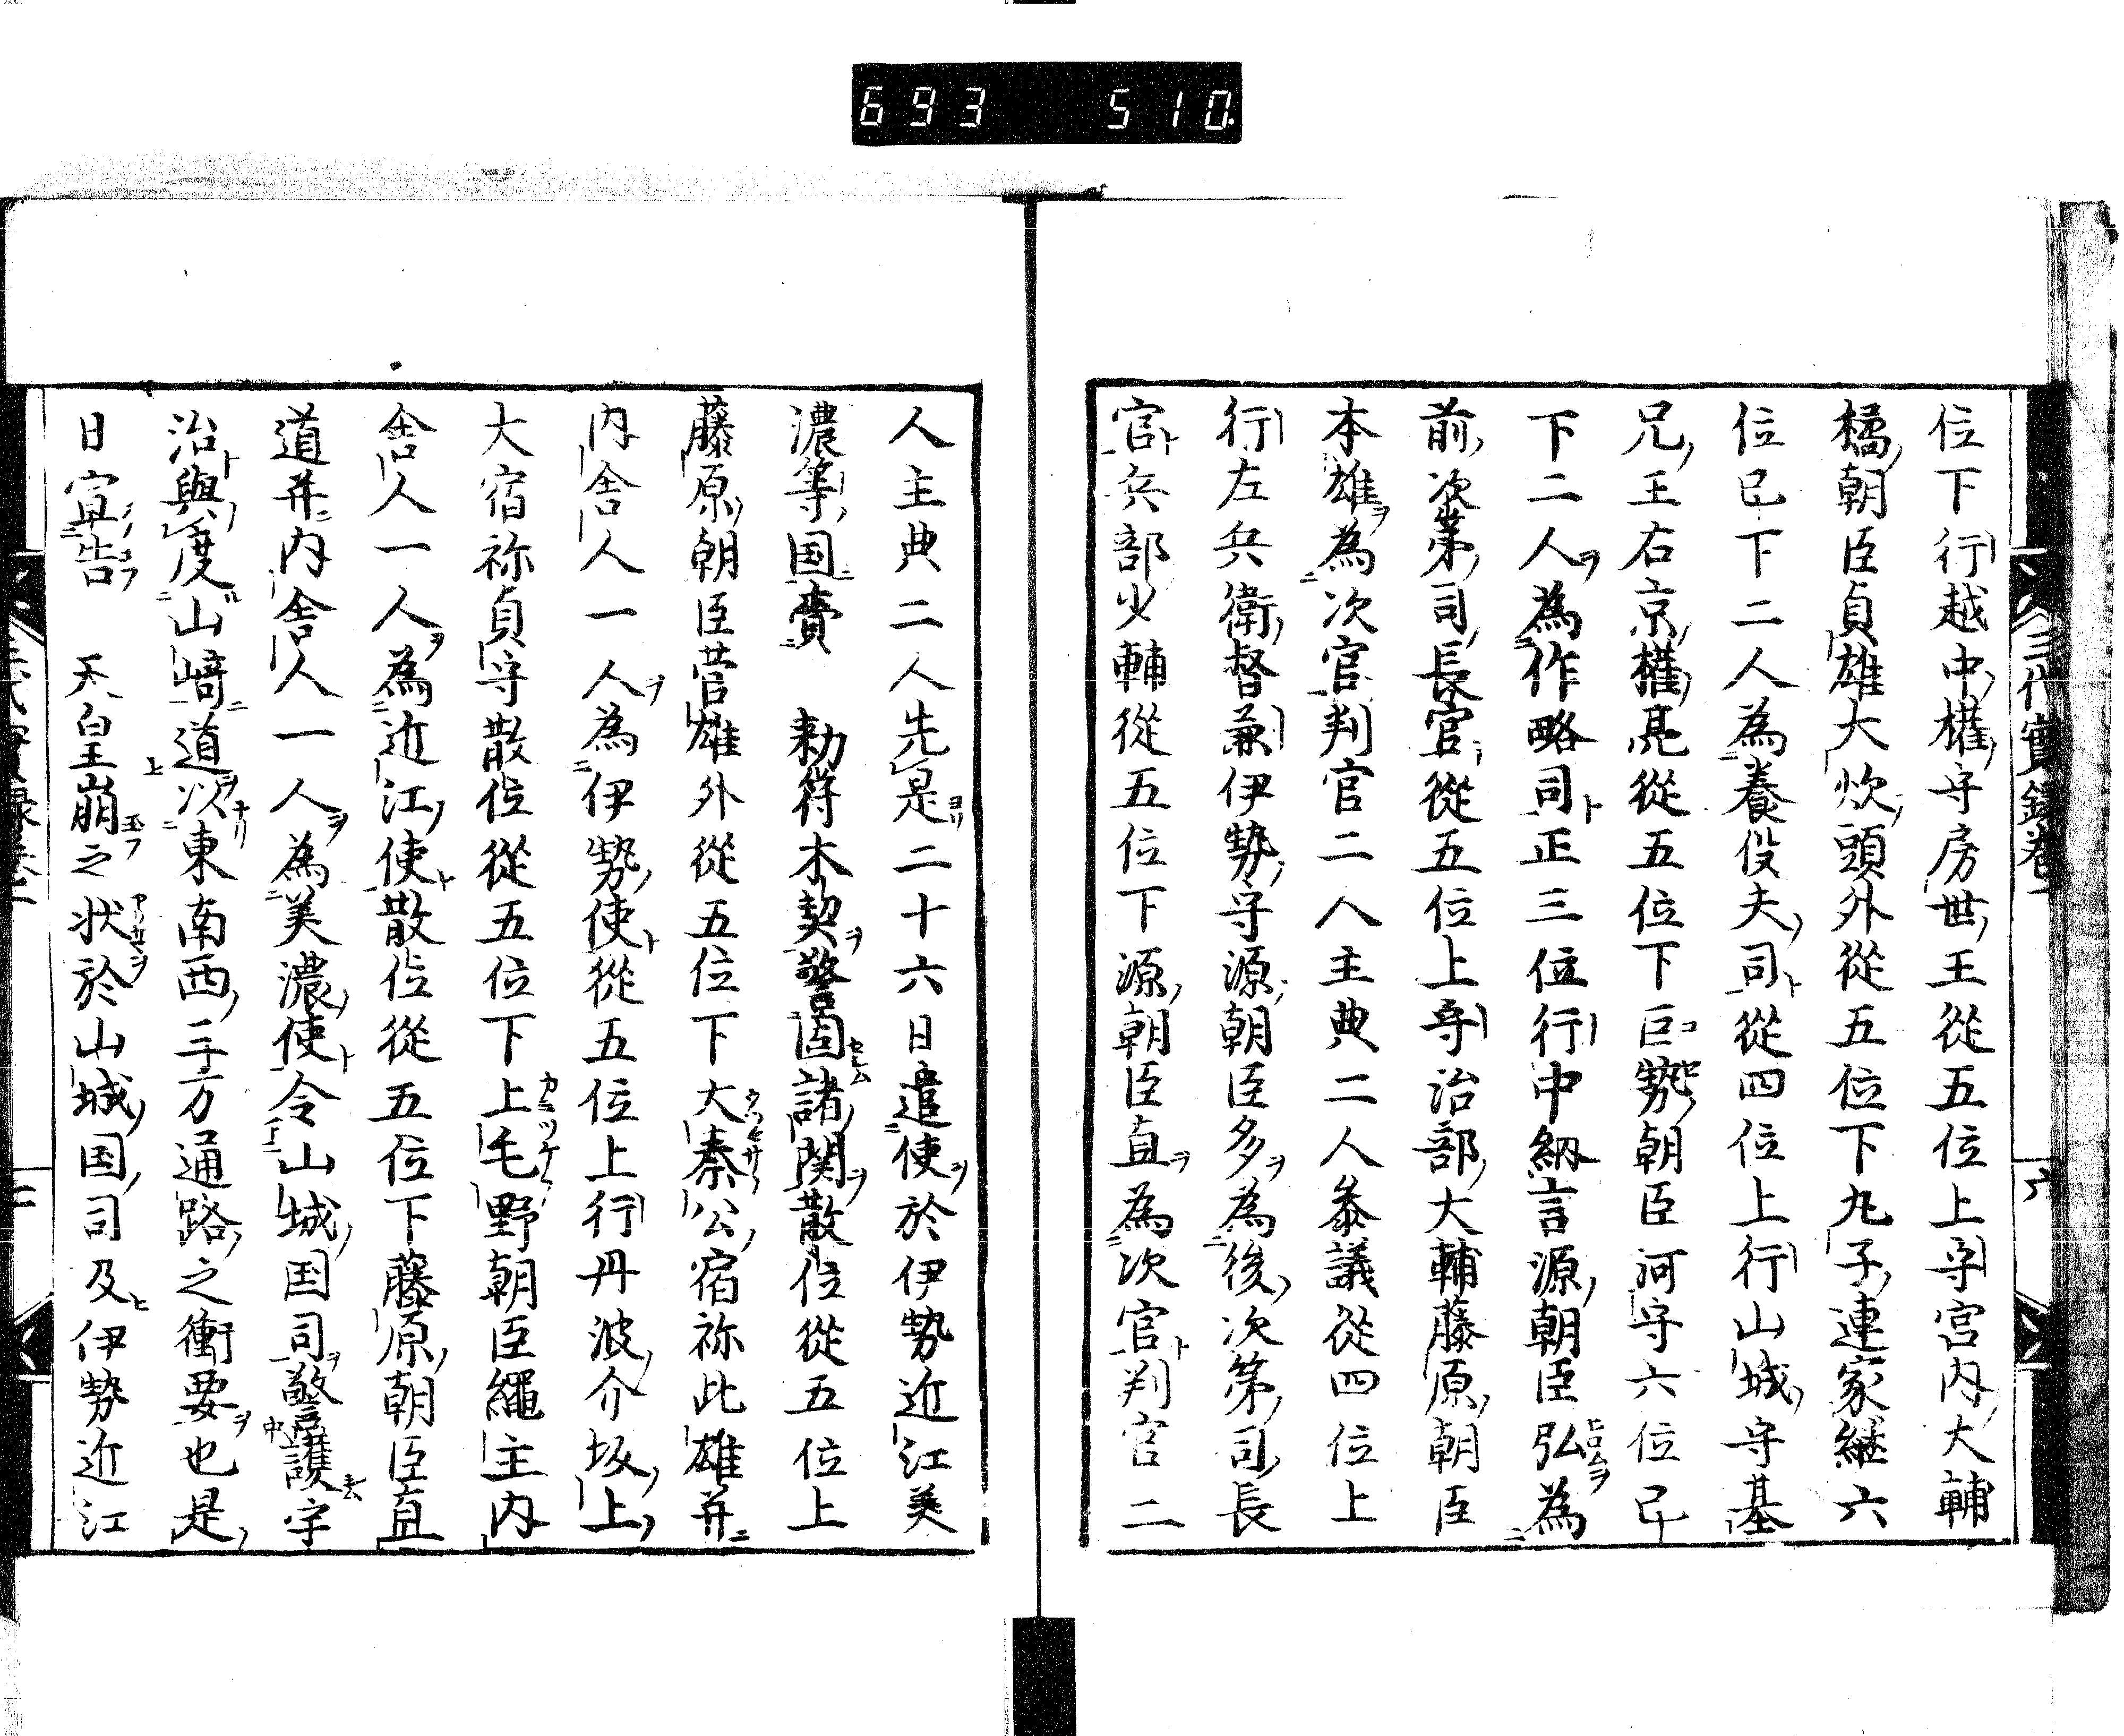 693 510
位下行越中權守房世王從五位上守宮内大輔
橘朝臣貞雄大炊頭外從五位下丸子連家継六
位已下二人為養役夫司從四位上行山城守基
兄王右京權亮從五位下巨勢朝臣河守六位已
下二人為作略司正三位行中納言源朝臣弘為
前次第司長官從五位上守治部大輔藤原朝臣
本雄為次官判官二人主典二人叅議從四位上
行左兵衛督兼伊勢守源朝臣多為後次第司長
官兵部少輔從五位下源朝臣直為次官判官二
人主典二人先是二十六日遣使於伊勢近江美
濃等国賫 勅符木契警固諸関散位從五位上
藤原朝臣菅雄外從五位下大秦公宿祢此雄并
内舎人一人為伊勢使從五位上行丹波介坂上
大宿祢貞守散位從五位下上毛野朝臣繩主内
舎人一人為近江使散位從五位下藤原朝臣直
道并内舎人一人為美濃使令山城国司警護宇
治與度山﨑道以東南西三方通路之衝要也是
日宜告 天皇崩之状於山城国司及伊勢近江
三代實録卷